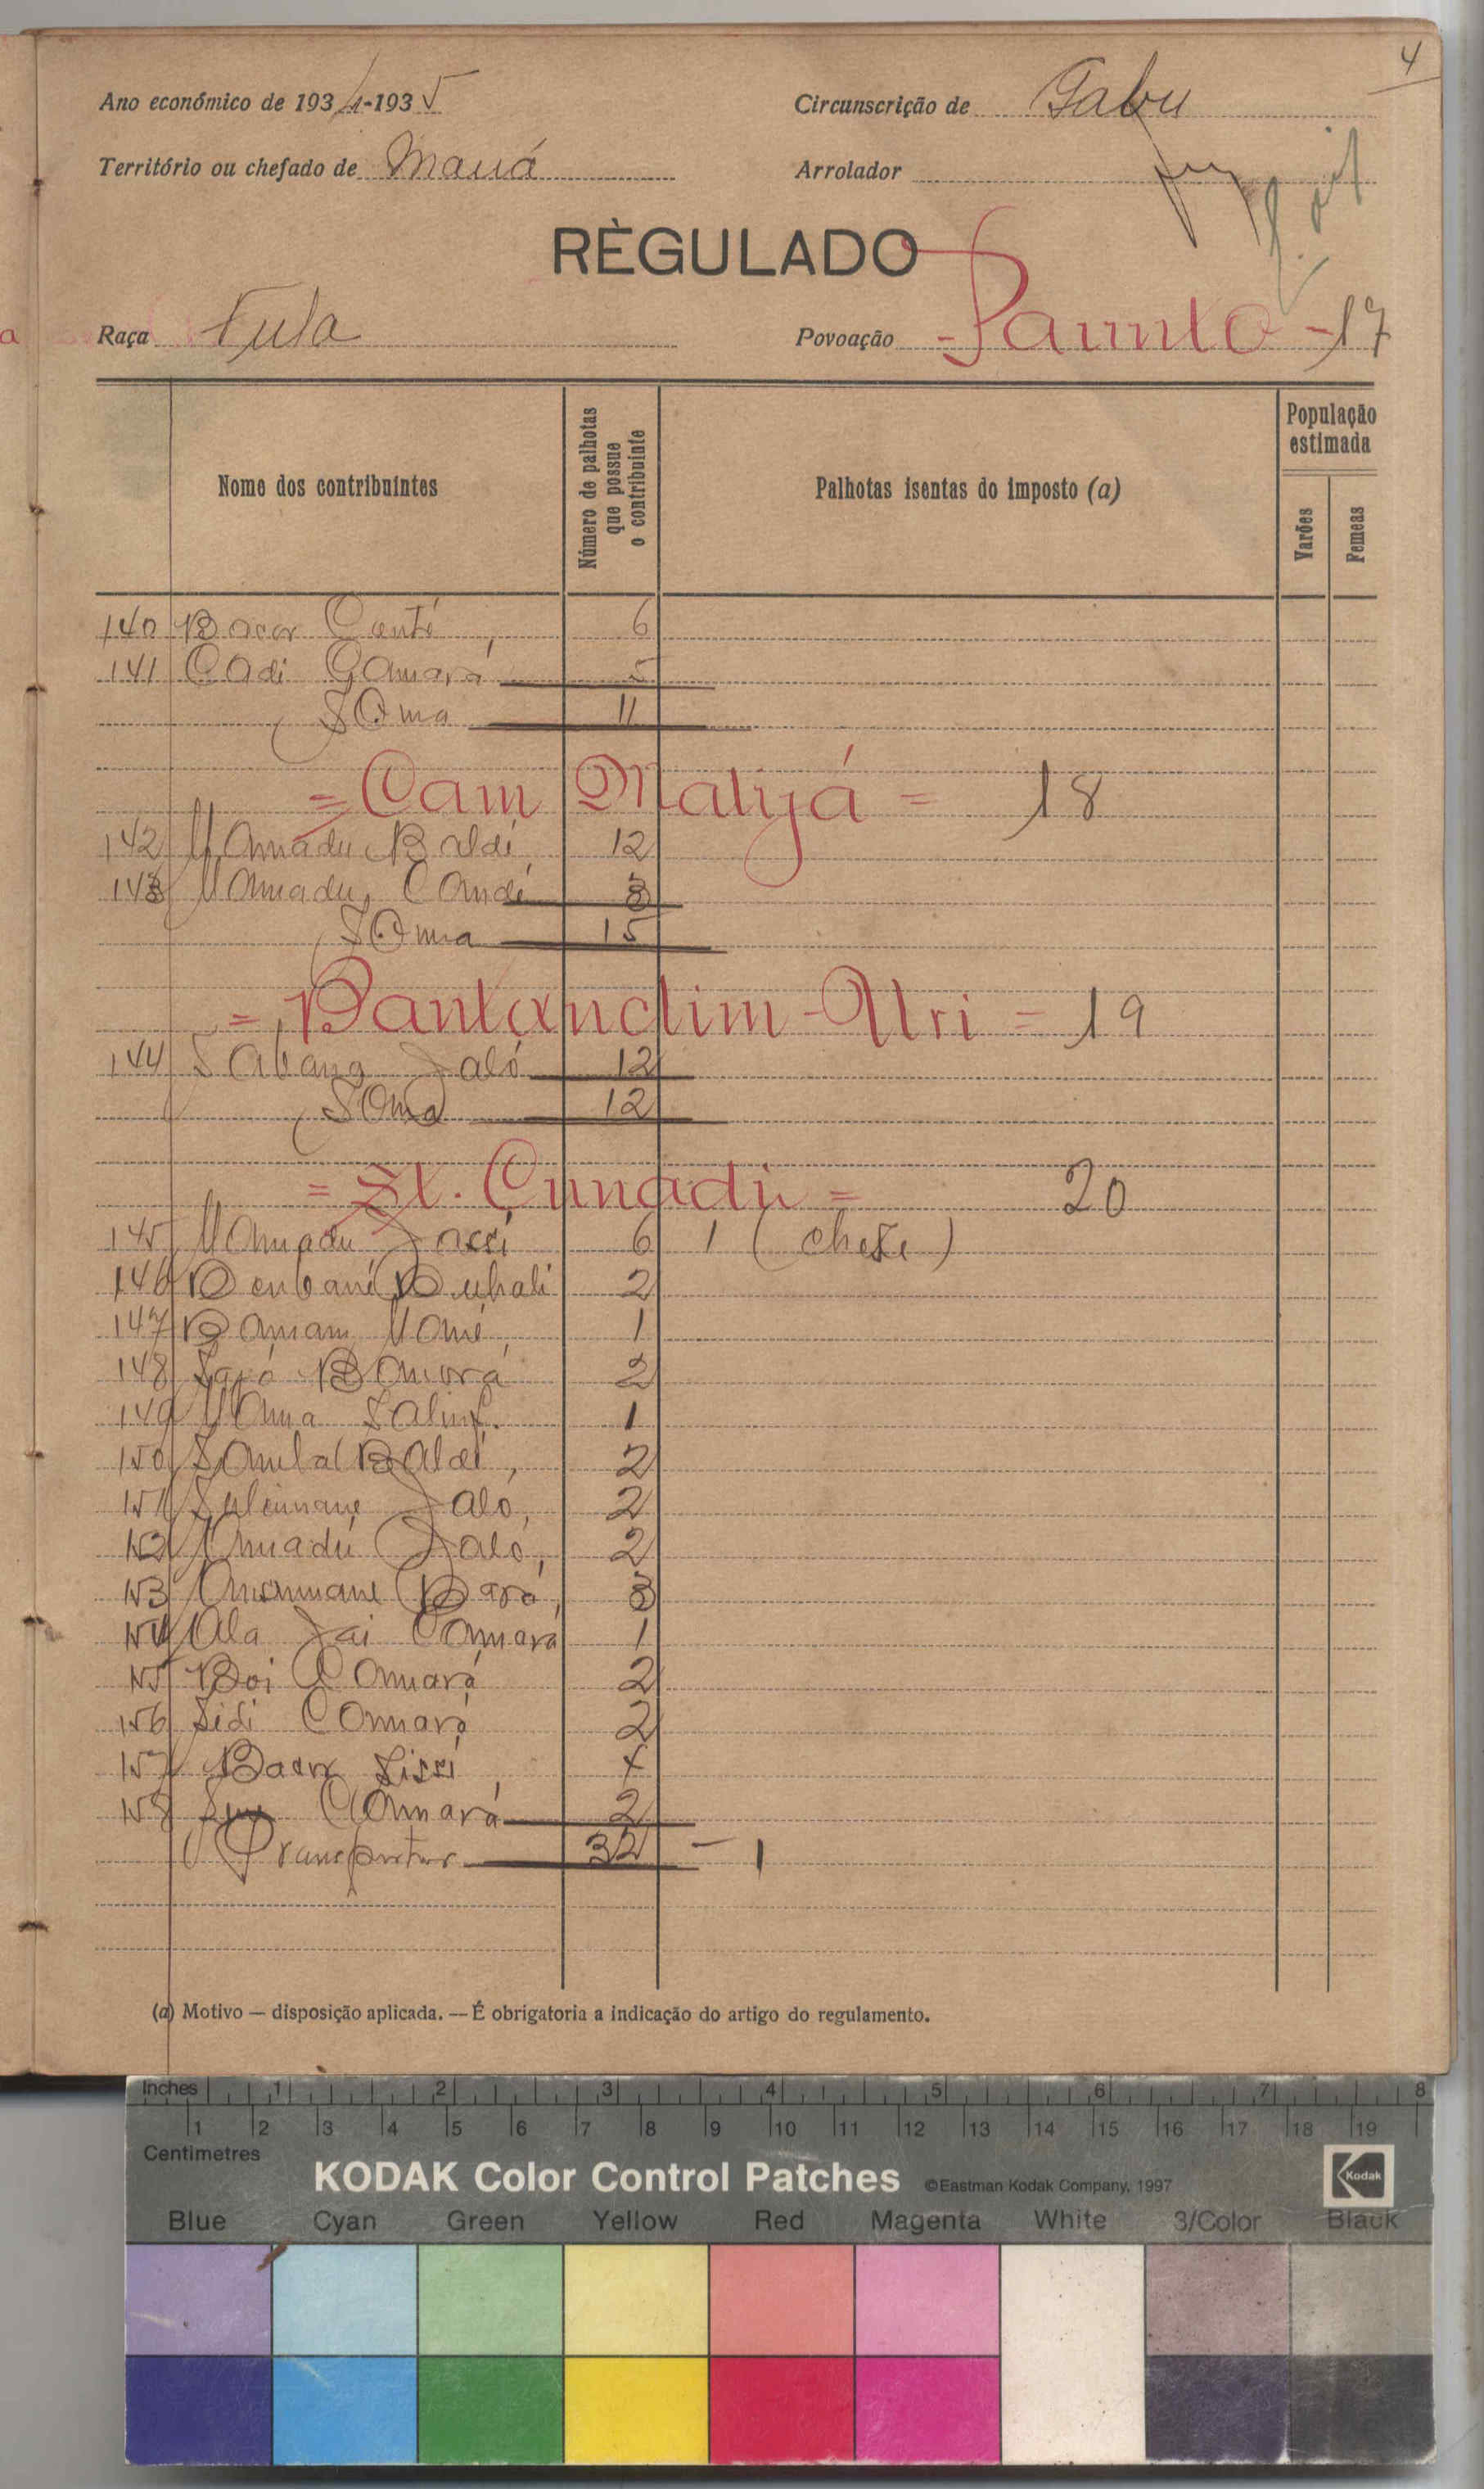 4
Ano económico de 1934-1935 Circunscrição de Gabu
Território ou chefado de Maná Arrolador
RÈGULADO
Raça Fula Povoação - Paunto - 17
Nome dos contribuintes
Número de palhotas que possue o contribuinte
Palhotas isentas do imposto (a)
População estimada
Varões
Femeas
140 Bacar Canté, 6
141 Cadi Camará 5
Soma 11
= Cam Matijá = 18
142 Mamadu Baldé 12
143 Mamadu, Candé 3
Soma 15
= Bantandim - Uri = 19
144 Jaló 12
Soma 12
= St. Cunadú = 20
145 Mamadu 6 1 (chefe)
146 2
147 1
148 2
149 Mama 1
150 Samba Baldé, 2
151 Suleimane Jaló, 2
152 Amadú Jaló, 2
153 Baró, 3
154 Ala Jai Camará 1
155 Boi Camará 2
156 Sidi Camará 2
157 Bacar Sissé, x
158 Camará 2
Transportar 32 - 1
(a) Motivo — disposição aplicada. — É obrigatoria a indicação do artigo do regulamento.
Inches 1 2 3 4 5 6 7 8
1 2 3 4 5 6 7 8 9 10 11 12 13 14 15 16 17 18 19
Centimetres
KODAK Color Control Patches ©Eastman Kodak Company, 1997 Kodak
Blue Cyan Green Yellow Red Magenta White 3/Color Black